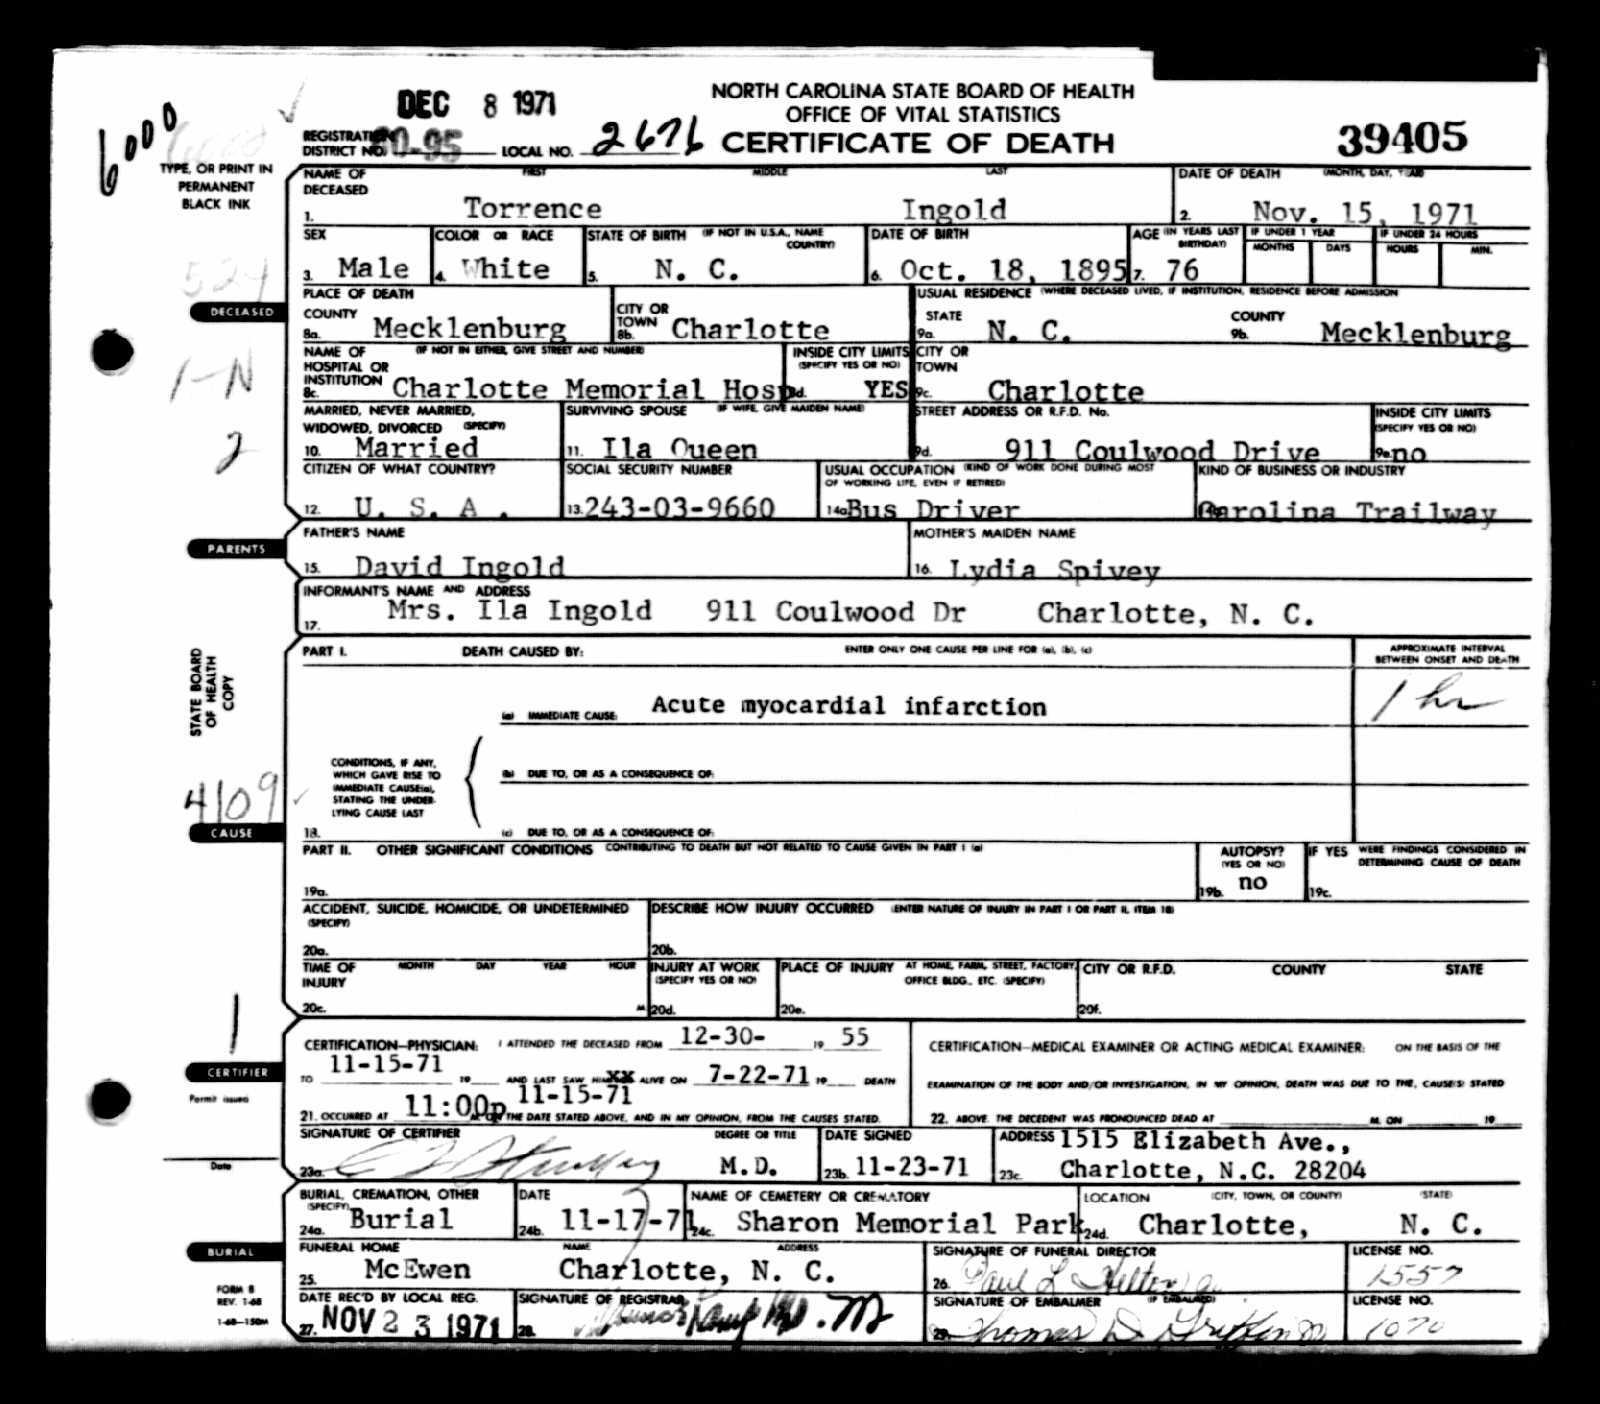 DEC 8 1971
NORTH CAROLINA STATE BOARD OF HEALTH
OFFICE OF VITAL STATISTICS
REGISTRATION DISTRICT NO. 60-95 LOCAL NO. 2676 CERTIFICATE OF DEATH 39405
6000
TYPE, OR PRINT IN PERMANENT BLACK INK
NAME OF DECEASED FIRST MIDDLE LAST DATE OF DEATH (MONTH, DAY, YEAR)
1. Torrence Ingold 2. Nov. 15, 1971
SEX COLOR OR RACE STATE OF BIRTH (IF NOT IN U.S.A., NAME COUNTRY) DATE OF BIRTH AGE (IN YEARS LAST BIRTHDAY) IF UNDER 1 YEAR MONTHS DAYS IF UNDER 24 HOURS HOURS MIN.
3. Male 4. White 5. N. C. 6. Oct. 18, 1895 7. 76
524
DECEASED
PLACE OF DEATH USUAL RESIDENCE (WHERE DECEASED LIVED, IF INSTITUTION, RESIDENCE BEFORE ADMISSION
COUNTY CITY OR TOWN STATE COUNTY
8a. Mecklenburg 8b. Charlotte 9a. N. C. 9b. Mecklenburg
NAME OF HOSPITAL OR INSTITUTION (IF NOT IN EITHER, GIVE STREET AND NUMBER) INSIDE CITY LIMITS (SPECIFY YES OR NO) CITY OR TOWN
8c. Charlotte Memorial Hosp 8d. YES 9c. Charlotte
1-N
2
MARRIED, NEVER MARRIED, WIDOWED, DIVORCED (SPECIFY) SURVIVING SPOUSE (IF WIFE, GIVE MAIDEN NAME) STREET ADDRESS OR R.F.D. No. INSIDE CITY LIMITS (SPECIFY YES OR NO)
10. Married 11. Ila Queen 9d. 911 Coulwood Drive 9e. no
CITIZEN OF WHAT COUNTRY? SOCIAL SECURITY NUMBER USUAL OCCUPATION (KIND OF WORK DONE DURING MOST OF WORKING LIFE, EVEN IF RETIRED) KIND OF BUSINESS OR INDUSTRY
12. U. S. A. 13. 243-03-9660 14a Bus Driver Carolina Trailway
PARENTS
FATHER'S NAME MOTHER'S MAIDEN NAME
15. David Ingold 16. Lydia Spivey
INFORMANT'S NAME AND ADDRESS
17. Mrs. Ila Ingold 911 Coulwood Dr Charlotte, N. C.
STATE BOARD OF HEALTH COPY
PART I. DEATH CAUSED BY: ENTER ONLY ONE CAUSE PER LINE FOR (a), (b), (c) APPROXIMATE INTERVAL BETWEEN ONSET AND DEATH
(a) IMMEDIATE CAUSE: Acute myocardial infarction 1 hr
CONDITIONS, IF ANY, WHICH GAVE RISE TO IMMEDIATE CAUSE(a), STATING THE UNDER-LYING CAUSE LAST
(b) DUE TO, OR AS A CONSEQUENCE OF:
4109
CAUSE
18. (c) DUE TO, OR AS A CONSEQUENCE OF:
PART II. OTHER SIGNIFICANT CONDITIONS CONTRIBUTING TO DEATH BUT NOT RELATED TO CAUSE GIVEN IN PART I (a) AUTOPSY? (YES OR NO) IF YES WERE FINDINGS CONSIDERED IN DETERMINING CAUSE OF DEATH
19a. 19b. no 19c.
ACCIDENT, SUICIDE, HOMICIDE, OR UNDETERMINED (SPECIFY) DESCRIBE HOW INJURY OCCURRED (ENTER NATURE OF INJURY IN PART I OR PART II, ITEM 18)
20a. 20b.
TIME OF INJURY MONTH DAY YEAR HOUR INJURY AT WORK (SPECIFY YES OR NO) PLACE OF INJURY AT HOME, FARM, STREET, FACTORY, OFFICE BLDG., ETC. (SPECIFY) CITY OR R.F.D. COUNTY STATE
20c. M 20d. 20e. 20f.
1
CERTIFIER
Permit issued
Date
CERTIFICATION—PHYSICIAN: I ATTENDED THE DECEASED FROM 12-30- 19 55
TO 11-15-71 19 AND LAST SAW HIM xx ALIVE ON 7-22-71 19 DEATH
21. OCCURRED AT 11:00p 11-15-71 M. ON THE DATE STATED ABOVE, AND IN MY OPINION, FROM THE CAUSES STATED.
CERTIFICATION—MEDICAL EXAMINER OR ACTING MEDICAL EXAMINER: ON THE BASIS OF THE
EXAMINATION OF THE BODY AND/OR INVESTIGATION, IN MY OPINION, DEATH WAS DUE TO THE, CAUSE(S) STATED
22. ABOVE. THE DECEDENT WAS PRONOUNCED DEAD AT M. ON 19
SIGNATURE OF CERTIFIER DEGREE OR TITLE DATE SIGNED ADDRESS 1515 Elizabeth Ave.,
23a. M.D. 23b. 11-23-71 23c. Charlotte, N.C. 28204
BURIAL, CREMATION, OTHER (SPECIFY) DATE NAME OF CEMETERY OR CREMATORY LOCATION (CITY, TOWN, OR COUNTY) (STATE)
24a. Burial 24b. 11-17-71 24c. Sharon Memorial Park 24d. Charlotte, N. C.
BURIAL
FUNERAL HOME NAME ADDRESS SIGNATURE OF FUNERAL DIRECTOR LICENSE NO.
25. McEwen Charlotte, N. C. 26. Paul L Helton 1557
FORM 8
REV. 1-68
1-68—150M
DATE REC'D BY LOCAL REG. SIGNATURE OF REGISTRAR SIGNATURE OF EMBALMER (IF EMBALMED) LICENSE NO.
27. NOV 23 1971 28. 29. Thomas D. 1070